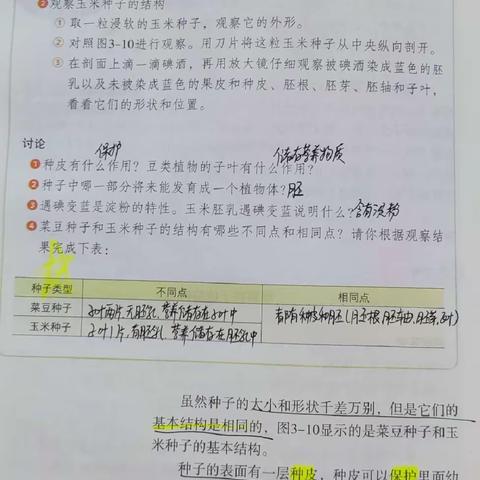 ②观察玉米种子的结构
① 取一粒浸软的玉米种子，观察它的外形。
② 对照图3-10进行观察。用刀片将这粒玉米种子从中央纵向剖开。
③ 在剖面上滴一滴碘酒，再用放大镜仔细观察被碘酒染成蓝色的胚
乳以及未被染成蓝色的果皮和种皮、胚根、胚芽、胚轴和子叶，
看看它们的形状和位置。
讨论
保护
储存营养物质
❶种皮有什么作用？豆类植物的子叶有什么作用？
❷种子中哪一部分将来能发育成一个植物体？胚
❸遇碘变蓝是淀粉的特性。玉米胚乳遇碘变蓝说明什么？含有淀粉
❹菜豆种子和玉米种子的结构有哪些不同点和相同点？请你根据观察结
果完成下表：
种子类型 不同点 相同点
菜豆种子 子叶两片,无胚乳,营养储存在子叶中 都有种皮和胚(胚根,胚轴,胚芽,子叶)
玉米种子 子叶1片,有胚乳,营养储存在胚乳中
虽然种子的大小和形状千差万别，但是它们的
基本结构是相同的，图3-10显示的是菜豆种子和玉
米种子的基本结构。
种子的表面有一层种皮，种皮可以保护里面幼